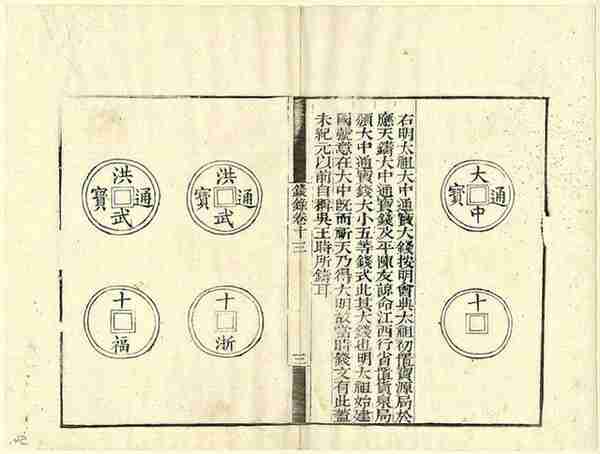 大中通寶
十
右明太祖大中通寶大錢按明會典太祖初置寶源局於
應天鑄大中通寶錢及平陳友諒命江西行省置貨泉局
頒大中通寶錢大小五等錢式此其大錢也明太祖始建
國號意在大中既而祈天乃得大明故當時錢文有此蓋
未紀元以前自稱吳王時所鑄耳
錢錄卷十三
洪武通寶
十浙
洪武通寶
十福